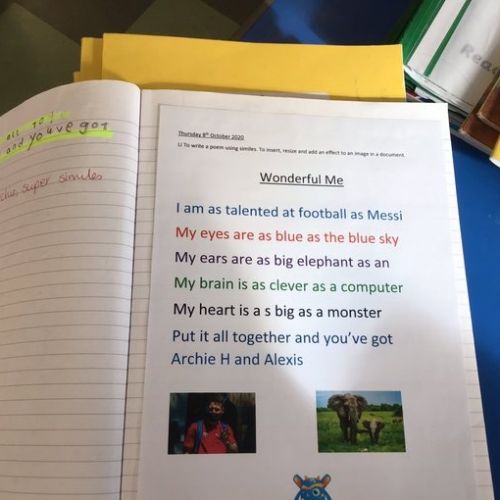 all to
and you've got
super similes
Read
Thursday 8th October 2020
LI To write a poem using similes. To insert, resize and add an effect to an image in a document.
Wonderful Me
I am as talented at football as Messi
My eyes are as blue as the blue sky
My ears are as big elephant as an
My brain is as clever as a computer
My heart is a s big as a monster
Put it all together and you've got
Archie H and Alexis